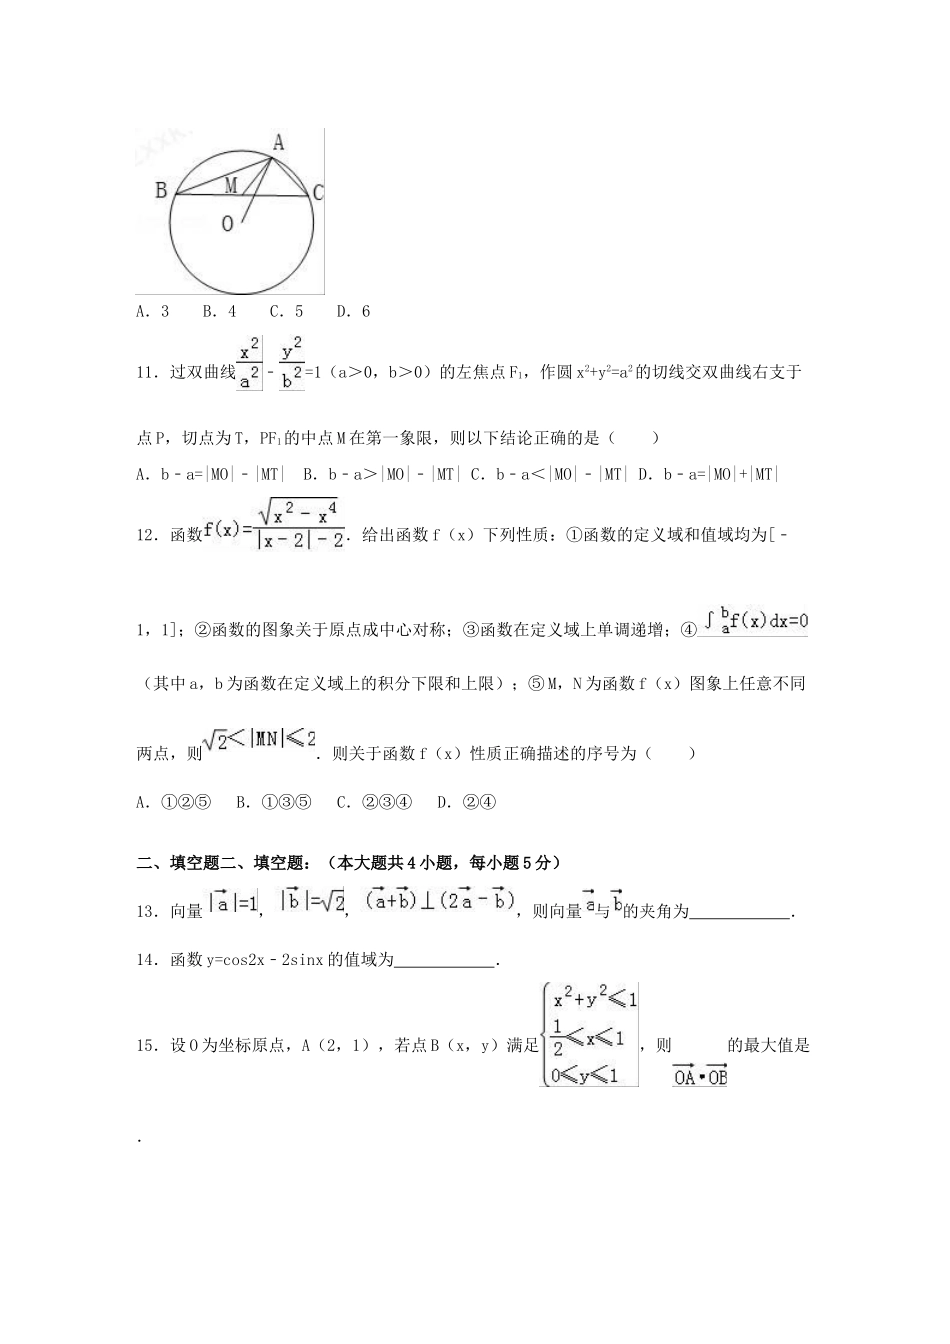 A
B
M
C
O
A．3 B．4 C．5 D．6
11．过双曲线x²/a²﹣y²/b²=1（a＞0，b＞0）的左焦点 F₁，作圆 x²+y²=a²的切线交双曲线右支于
点 P，切点为 T，PF₁的中点 M 在第一象限，则以下结论正确的是（ ）
A．b﹣a=|MO|﹣|MT| B．b﹣a＞|MO|﹣|MT| C．b﹣a＜|MO|﹣|MT| D．b﹣a=|MO|+|MT|
12．函数f(x)=√(x²−x⁴)/(|x−2|−2)．给出函数 f（x）下列性质：①函数的定义域和值域均为[﹣
1，1]；②函数的图象关于原点成中心对称；③函数在定义域上单调递增；④∫ᵇₐf(x)dx=0
（其中 a，b 为函数在定义域上的积分下限和上限）；⑤M，N 为函数 f（x）图象上任意不同
两点，则√2＜|MN|≤2．则关于函数 f（x）性质正确描述的序号为（ ）
A．①②⑤ B．①③⑤ C．②③④ D．②④
二、填空题二、填空题：（本大题共 4 小题，每小题 5 分）
13．向量|a⃗|=1，|b⃗|=√2，(a⃗+b⃗)⊥(2a⃗−b⃗)，则向量a⃗与b⃗的夹角为____________．
14．函数 y=cos2x﹣2sinx 的值域为____________．
15．设 O 为坐标原点，A（2，1），若点 B（x，y）满足{x²+y²≤1 1/2≤x≤1 0≤y≤1，则OA→•OB→的最大值是
．